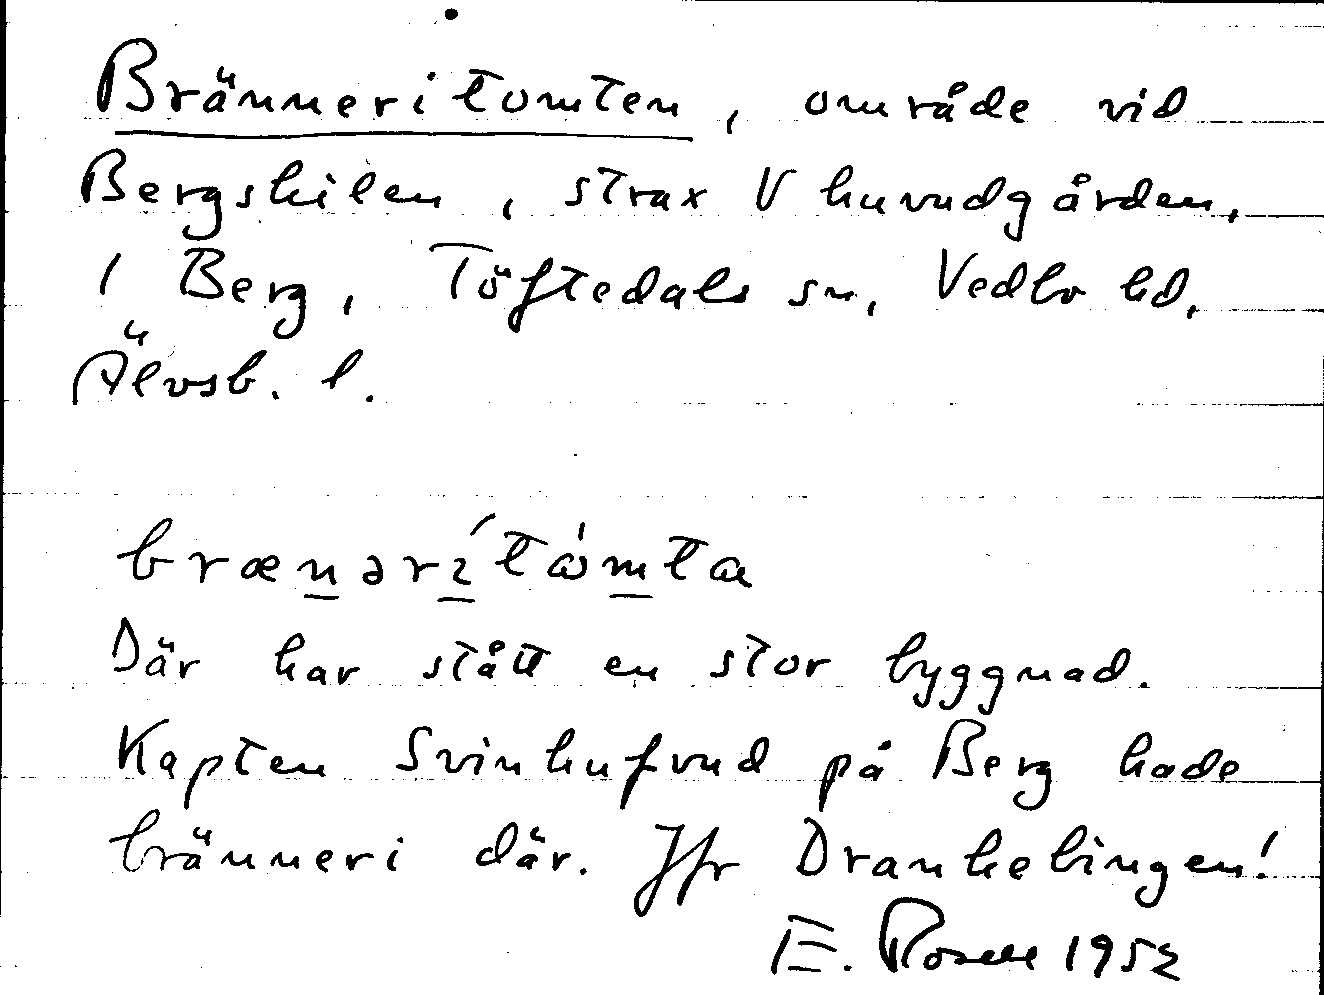 Bränneritomten, område vid
Bergskilen, strax V huvudgården,
1 Berg, Töftedals sn, Vedbo hd,
Älvsb. l.
brænəri´tåmta
Där har stått en stor byggnad.
Kapten Svinhufvud på Berg hade
bränneri där. Jfr Drankebingen!
E. Rosell 1952